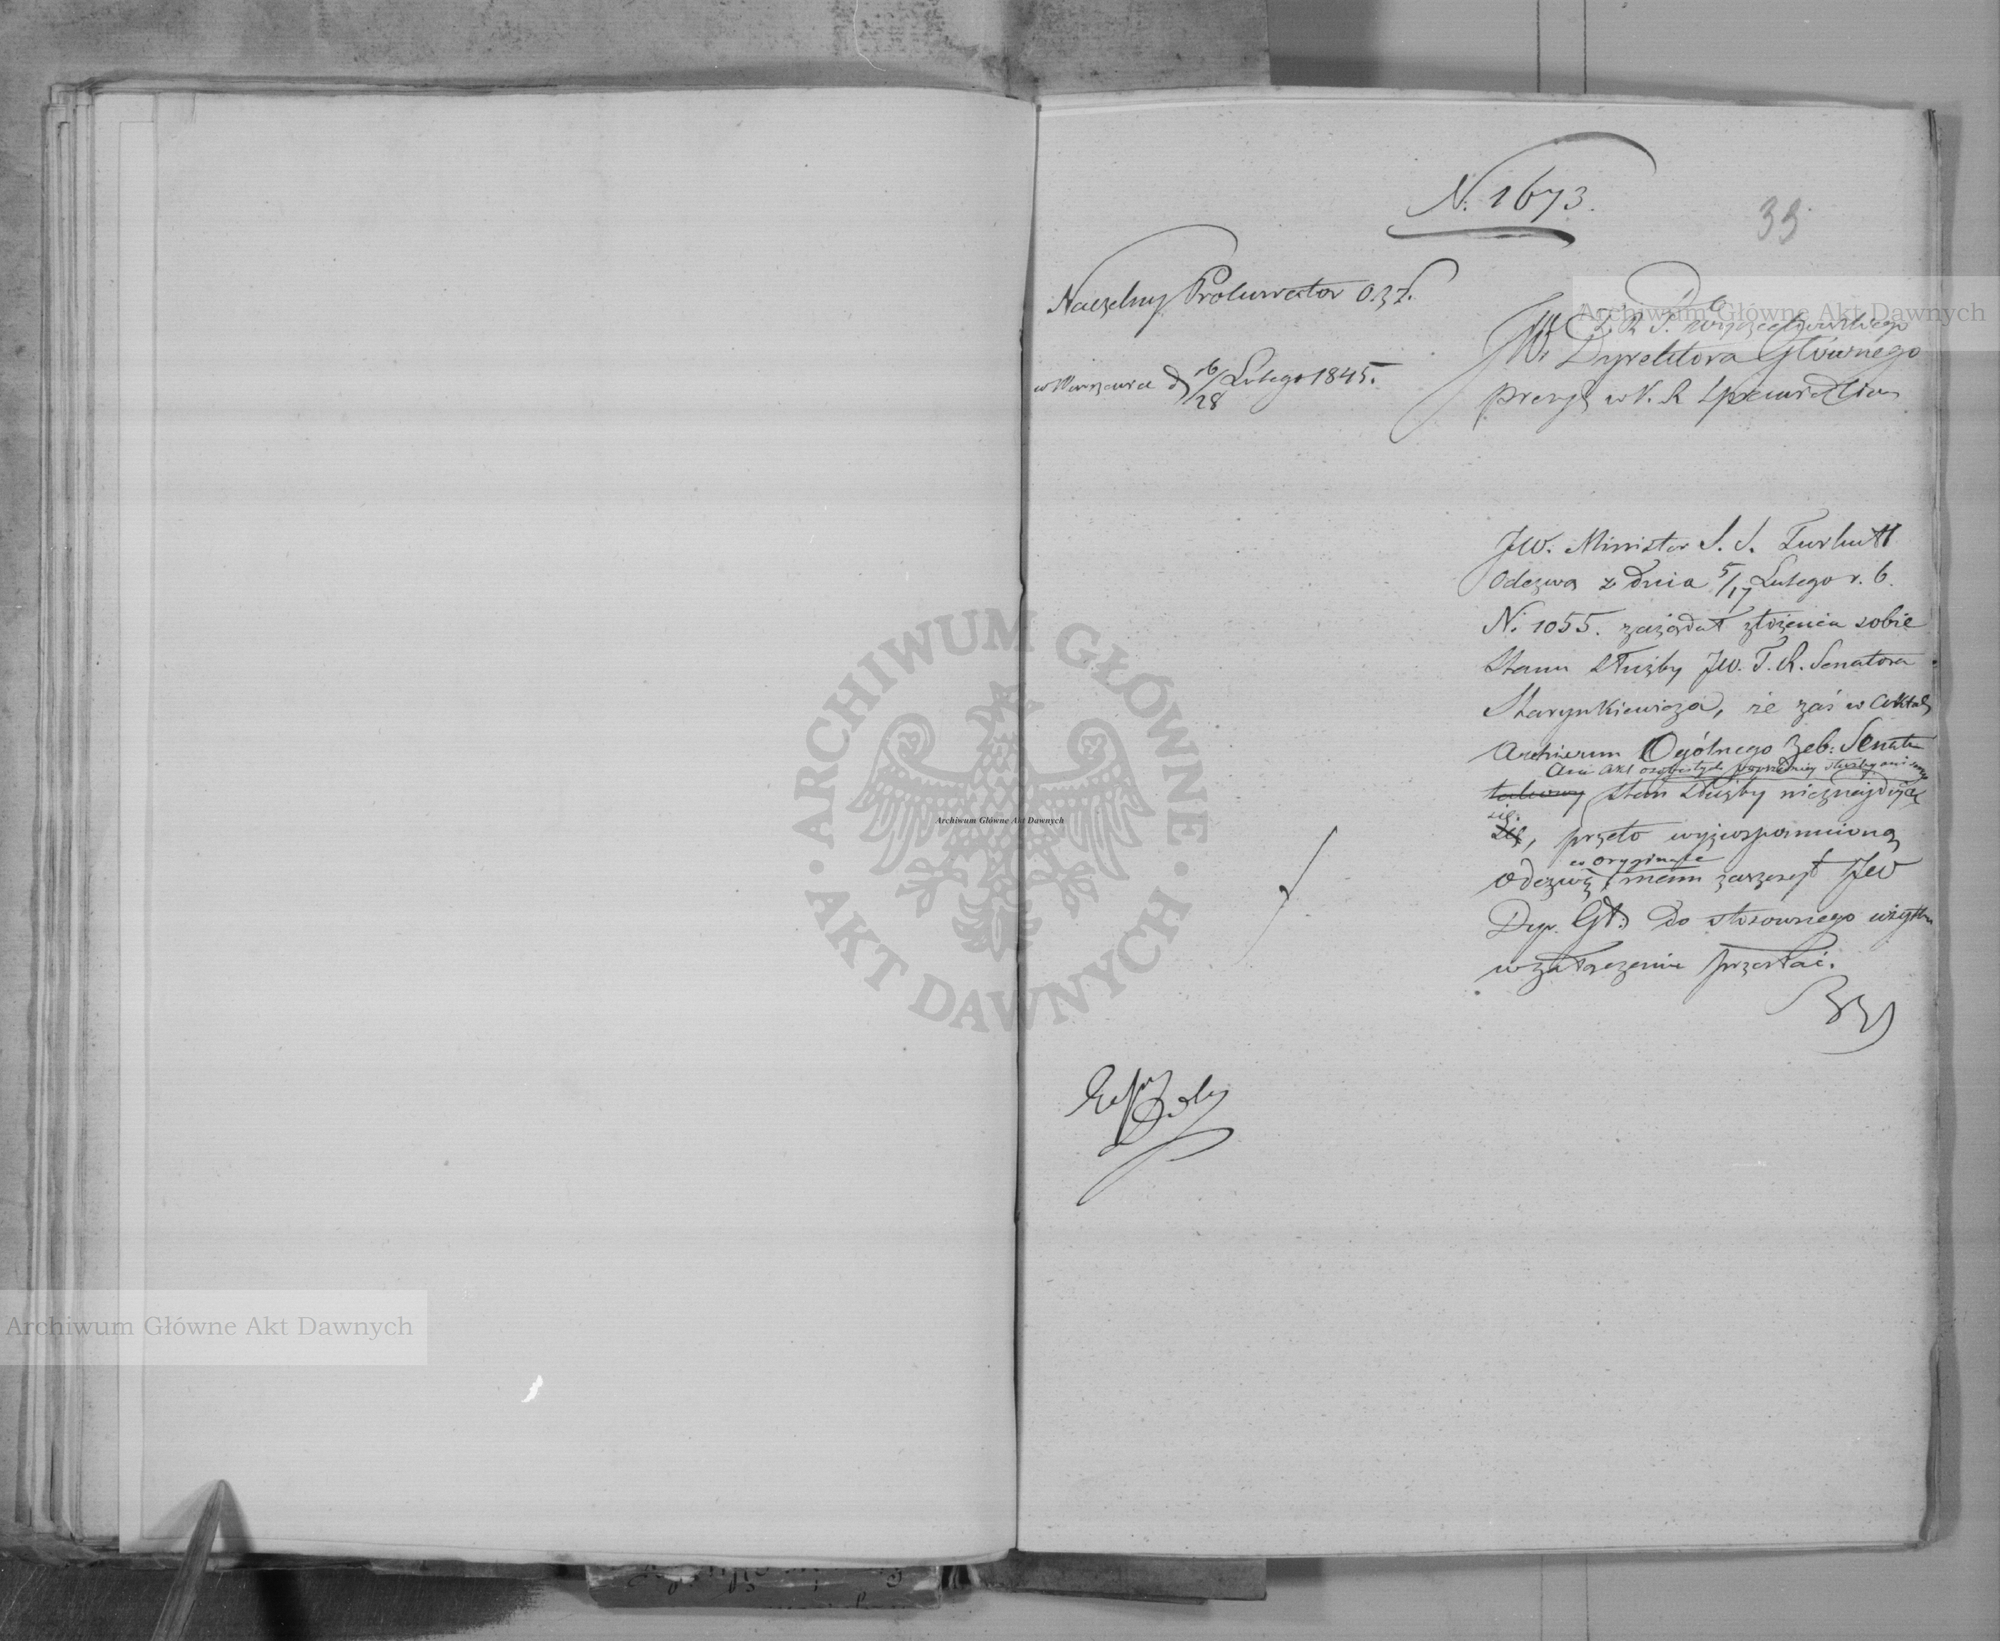 N. 1673.
33
Naczelny Prokurator OZS.
w Warszawie d 16/28 Lutego 1845.
Do
R. T. Wojciechowskiego
JW. Dyrektora Głównego
Prezyd. w K. R. Sprawiedliw
JW. Minister S. S. Turkułł
Odezwą z dnia 5/17 Lutego r. b.
N. 1055. zażądał złożenia sobie
Stanu służby JW. T. R. Senatora
Starynkiewicza, że zaś w Aktach
Archiwum Ogólnego Zeb: Senatu
Ani Akt osobistych poprzedniey służby ani
takowy stan służby nieznajdują
się, przeto wyżwspomnioną
w oryginale
odezwę, mam zaszczyt JW
Dyr. Gł: do stosownego użytku
w załączeniu przesłać.
Archiwum Główne Akt Dawnych
ARCHIWUM GŁÓWNE · AKT DAWNYCH ·
Archiwum Główne Akt Dawnych
Archiwum Główne Akt Dawnych